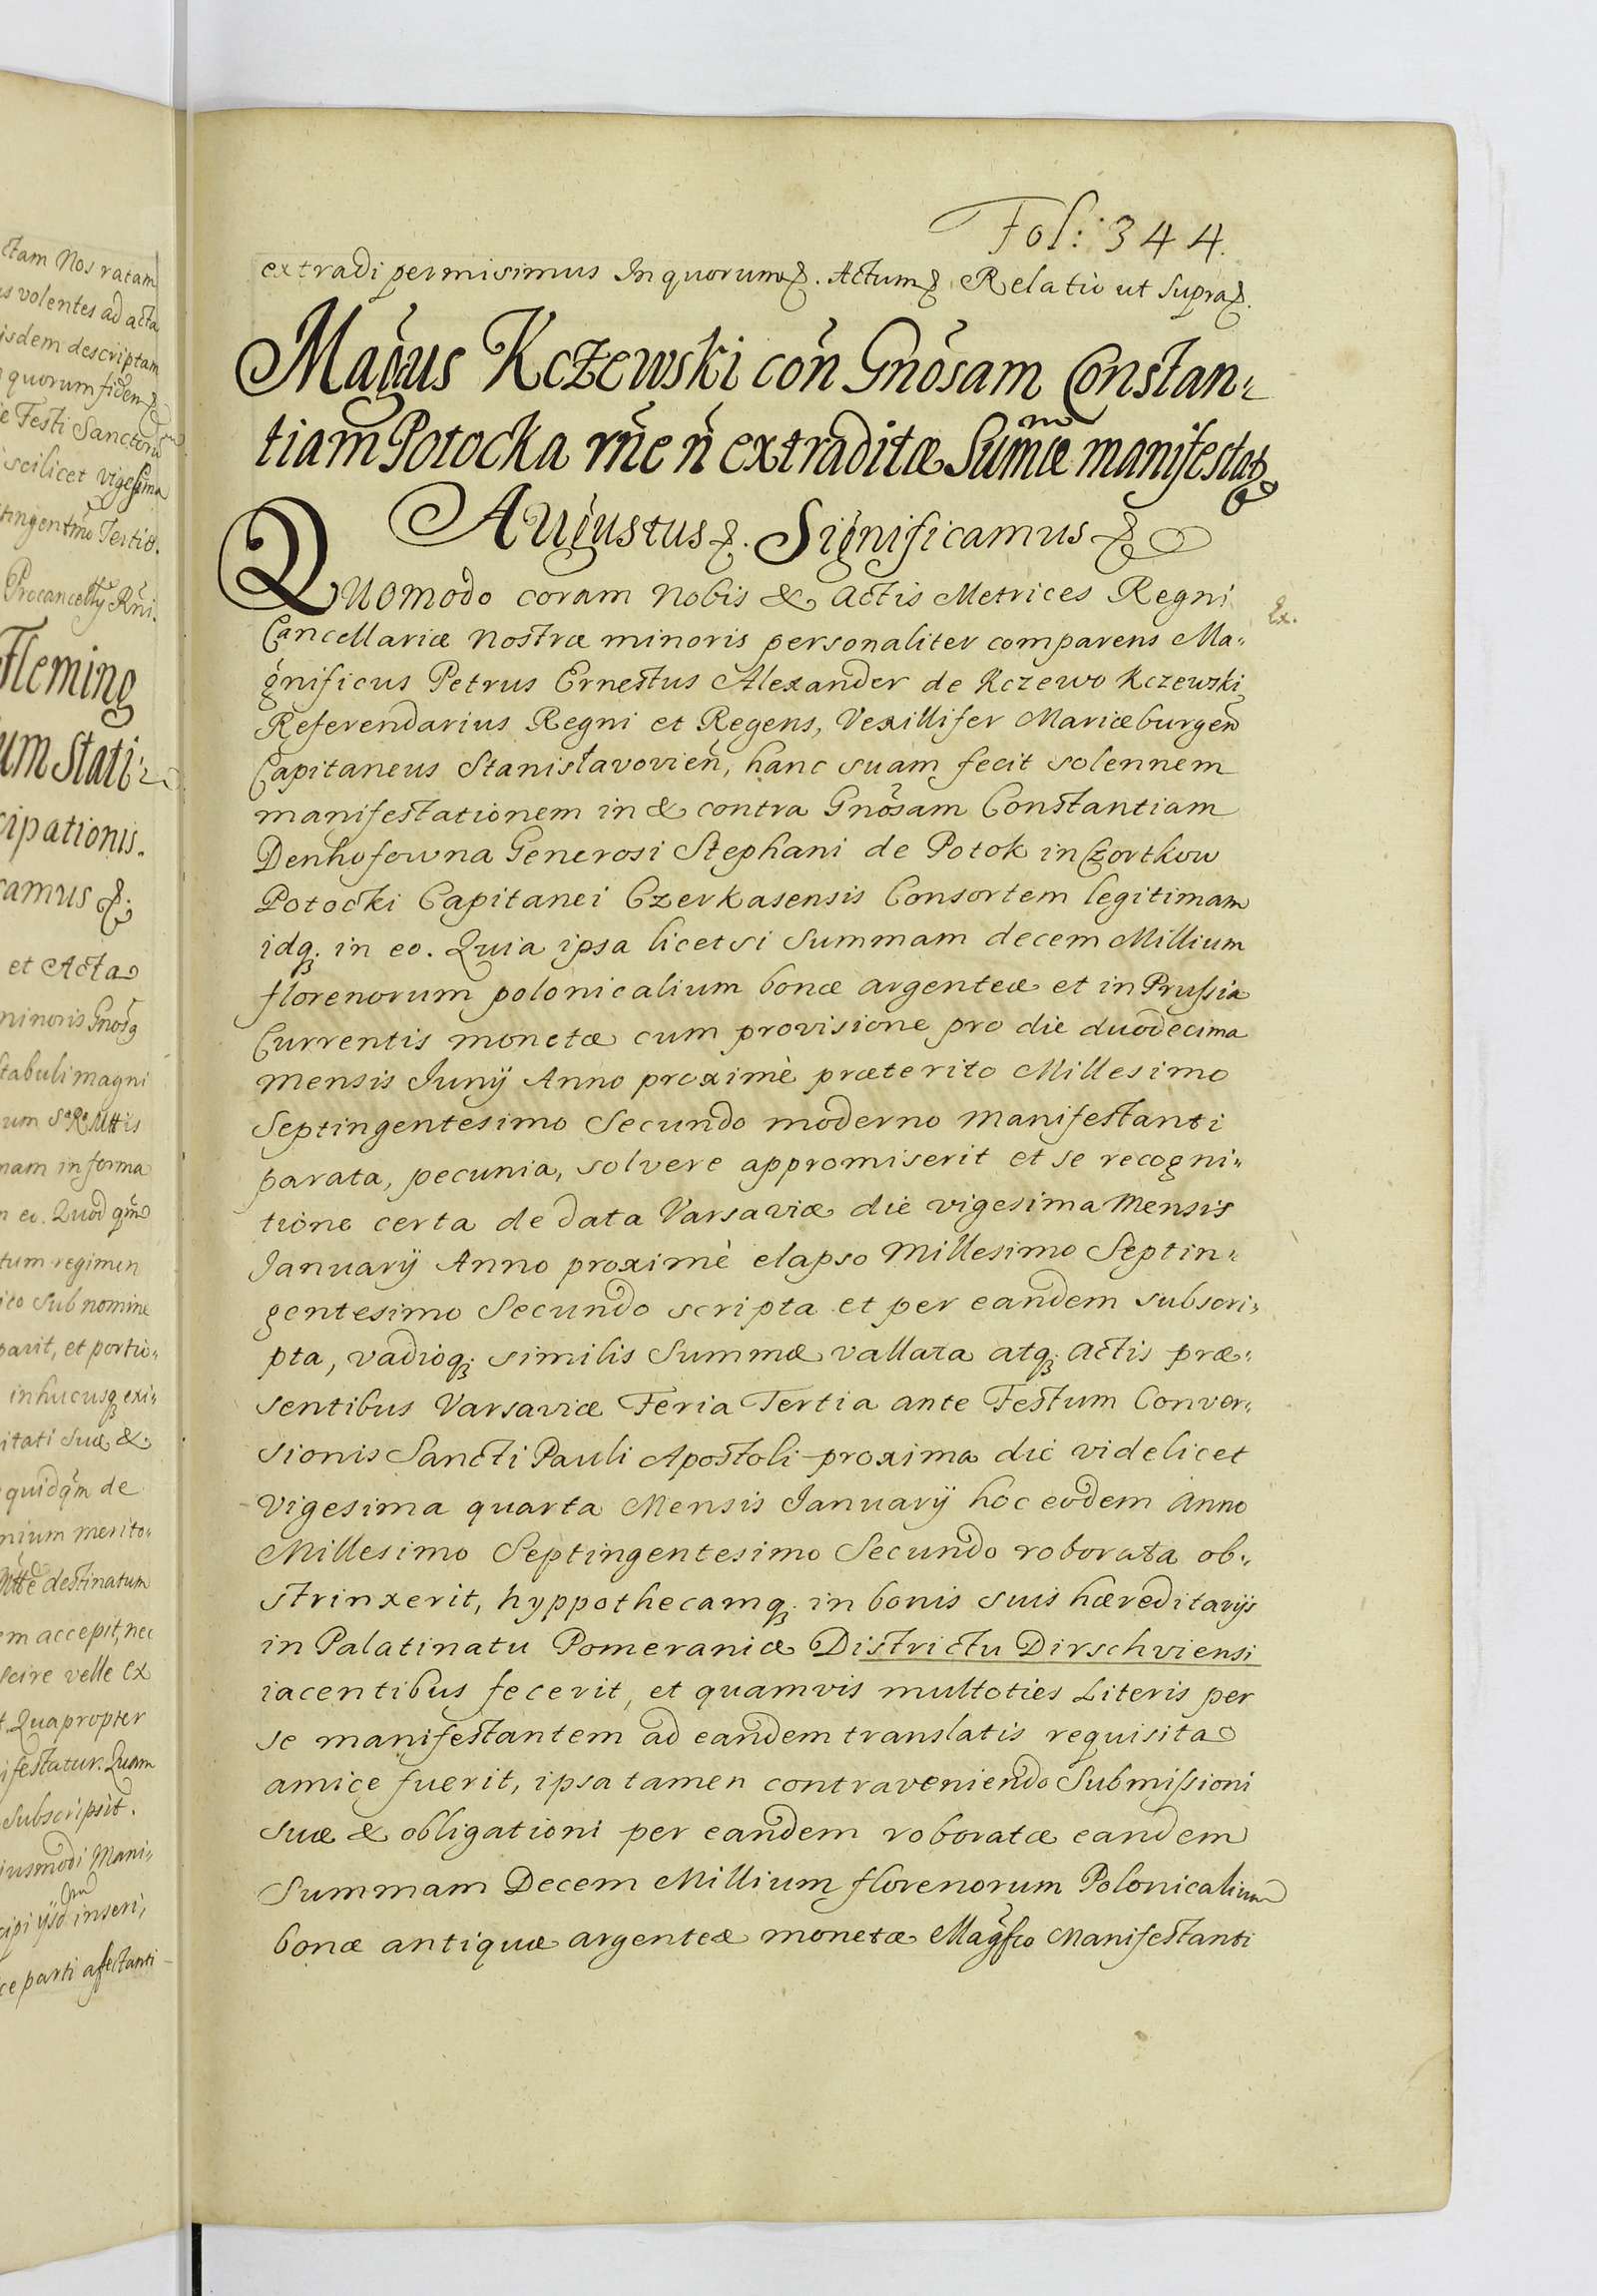 ctam Nos ratam
s volentes ad acta
jsdem descriptam
quorum fidem
e Festi Sanctoru
scilicet vigesima
tingentmo Tertio.
Procancellrij Rni.
Fleming
um Stati
cipationis.
camus
et Acta
minoris Gnosg
tabuli magni
um
nam in forma
n eo. Quod qm
tum regimen
ito sub nomine
parit, et portio„
in hucusq exi„
itati suæ &
quidqm de
nium merito„
destinatum
em accepit, nec
scire velle Ex
t. Quapropter
ifestatur. Quam
subscripsit.
iusmodi Mani„
cipi inseri,
ce parti affectanti
Fol: 344.
extradi permisimus In quorum. Actum Relatio ut supra.
Magcus Kczewski con Gnosam Constan„
tiam Potocka rne n extraditæ Sumæ manifestat
Augustus. Significamus
Quomodo coram Nobis & Actis Metrices Regni
Ex.
Cancellariæ Nostræ minoris personaliter comparens Ma„
gnificus Petrus Ernestus Alexander de Kczewo Kczewski
Referendarius Regni et Regens, Vexillifer Mariæburgen
Capitaneus Stanisłavovien, hanc suam fecit solennem
manifestationem in & contra Gnosam Constantiam
Denhofowna Generosi Stephani de Potok in Czortkow
Potocki Capitanei Czerkasensis Consortem legitimam
idq. in eo. Quia ipsa licet si Summam decem Millium
florenorum polonicalium bonæ argenteæ et in Prussia
Currentis monetæ cum provisione pro die duodecima
mensis Junÿ Anno proximè præterito Millesimo
Septingentesimo Secundo moderno Manifestanti
parata, pecunia, solvere appromiserit et se recogni„
tione certa de data Varsaviæ die vigesima Mensis
Januarÿ Anno proximè elapso Millesimo Septin„
gentesimo Secundo scripta et per eandem subscri„
pta, vadioq. similis Summæ vallata atq. Actis præ„
sentibus Varsaviæ Feria Tertia ante Festum Conver„
sionis Sancti Pauli Apostoli proxima die videlicet
Vigesima quarta Mensis Januarÿ hoc eodem Anno
Millesimo Septingentesimo Secundo roborata ob„
strinxerit, hyppothecamq. in bonis suis hæreditarÿs
in Palatinatu Pomeraniæ Districtu Dirschviensi
iacentibus fecerit, et quamvis multoties Literis per
se manifestantem ad eandem translatis requisita
amice fuerit, ipsa tamen contraveniendo Submissioni
suæ & obligationi per eandem roboratæ eandem
Summam Decem Millium florenorum Polonicalium
bonæ antiquæ argenteæ monetæ Magfco Manifestanti